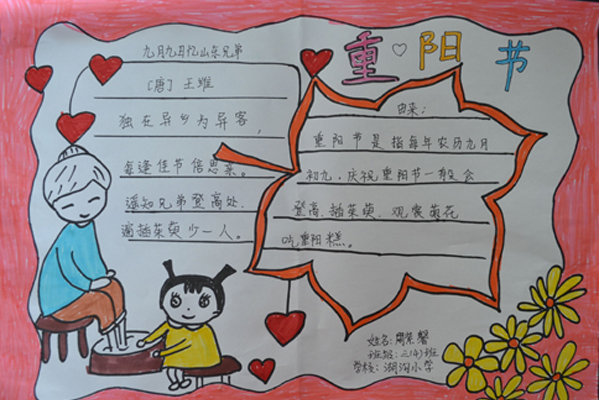 重阳节
九月九日忆山东兄弟
[唐] 王维
独在异乡为异客,
每逢佳节倍思亲。
遥知兄弟登高处,
遍插茱萸少一人。
由来:
重阳节是指每年农历九月
初九,庆祝重阳节一般会
登高、插茱萸、观赏菊花
吃重阳糕。
姓名:周紫馨
班级:三(4)班
学校: 小学